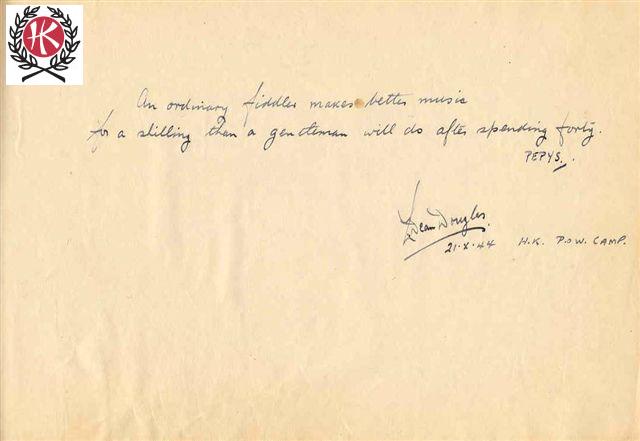 HK
An ordinary fiddler makes better music
for a shilling than a gentleman will do after spending forty.
PEPYS.
Dean Douglas.
21·X·44 H.K. P.O.W. CAMP.